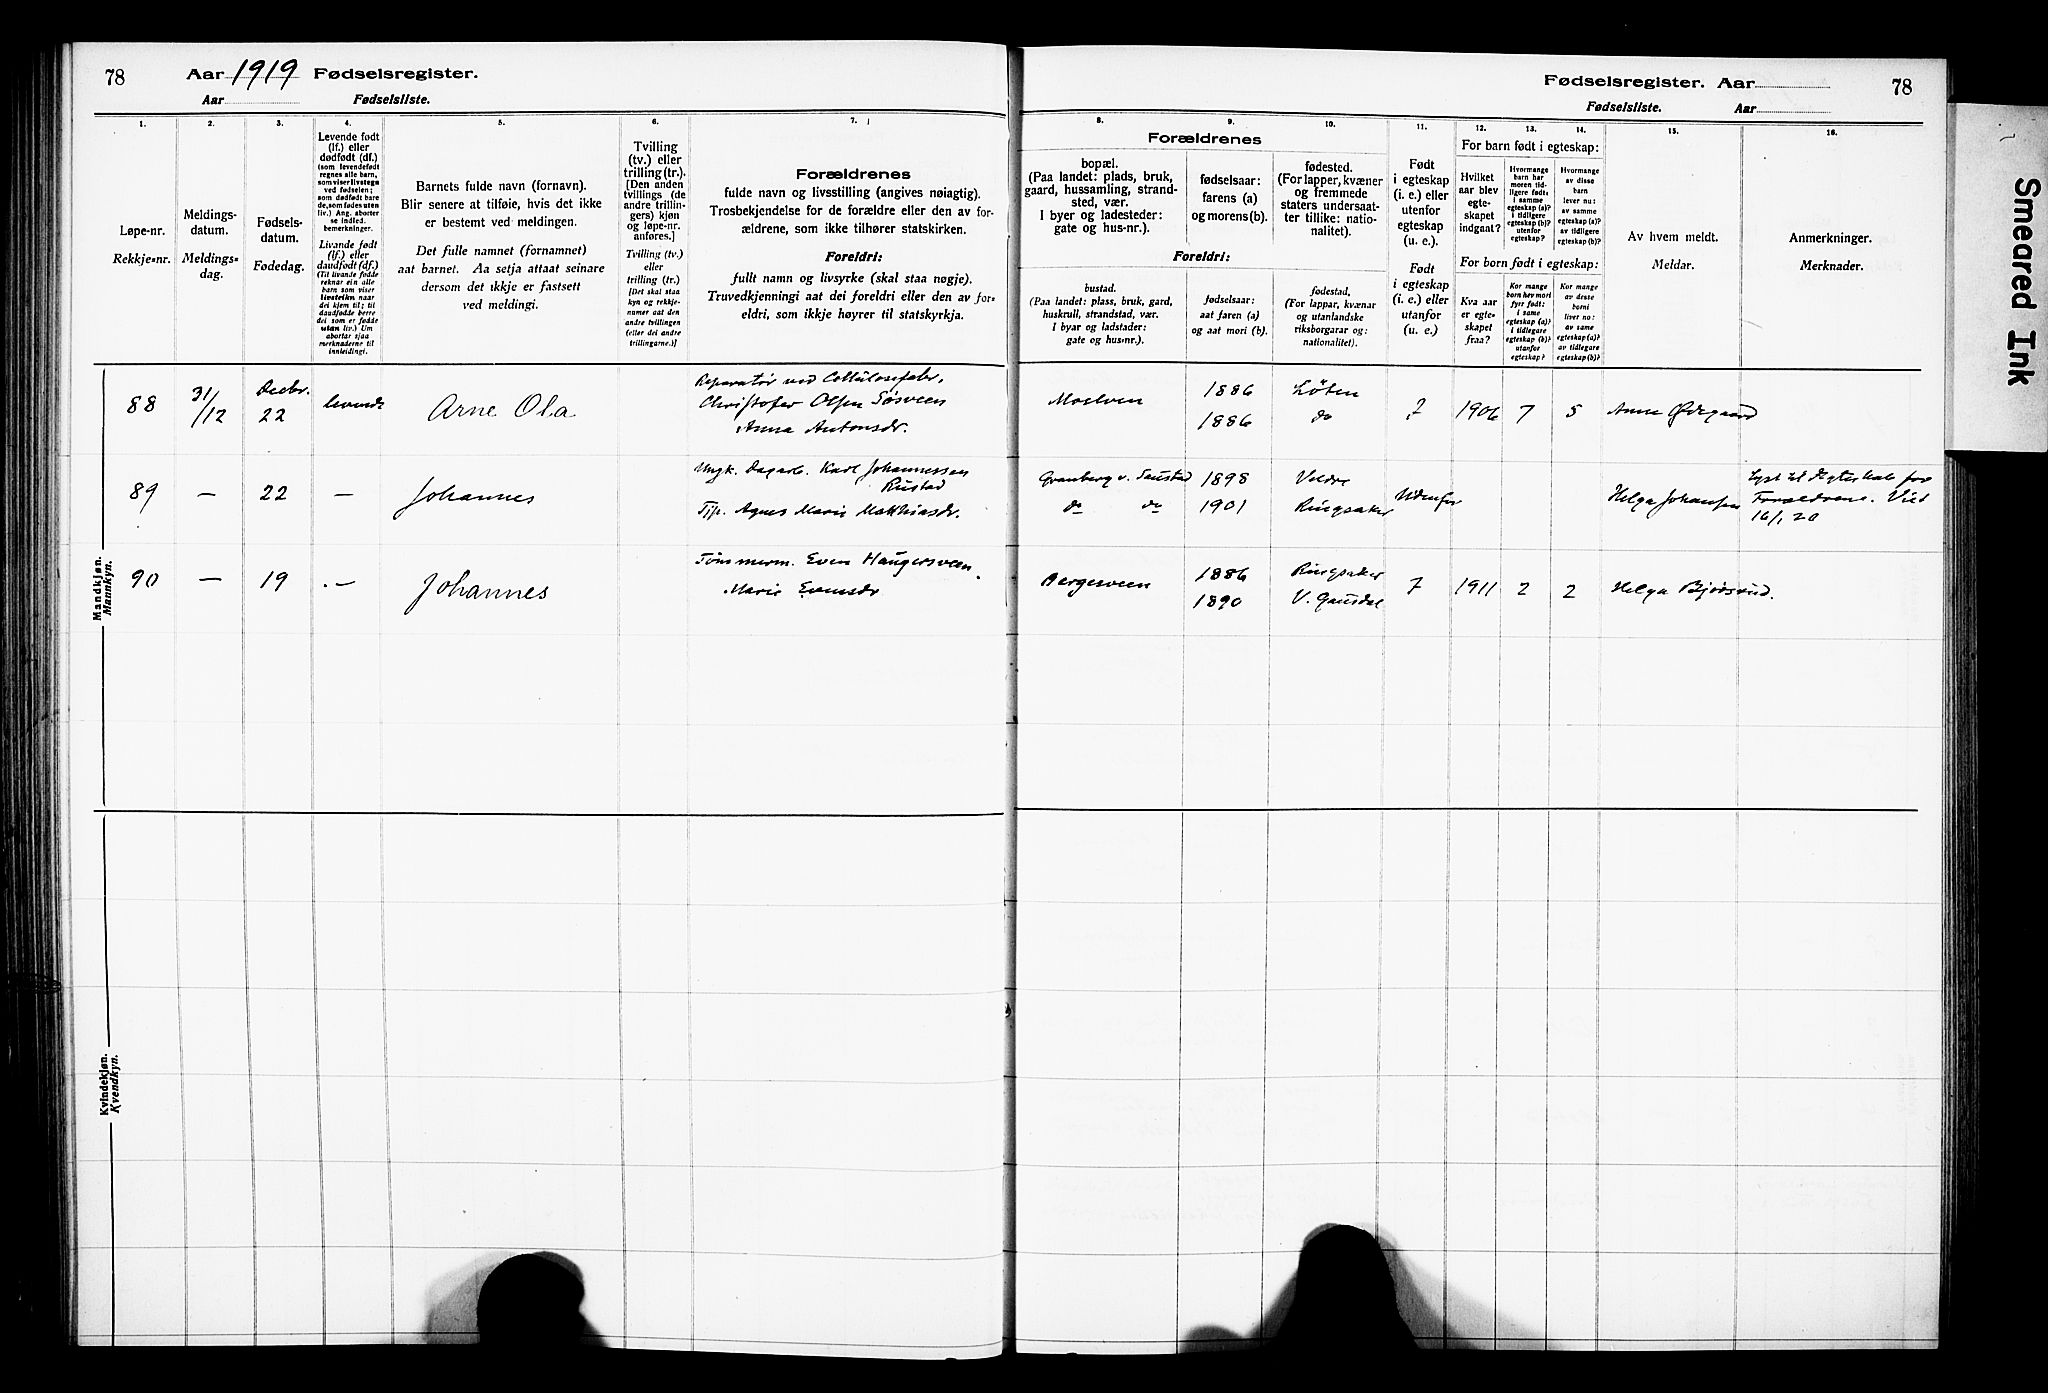 78
Aar 1919 Fødselsregister.
Aar Fødselsliste.
Fødselsregister. Aar
78
Fødselsliste. Aar
Smeared Ink
1.
Løpe-nr.
Rekkje-nr.
2.
Meldings-
datum.
Meldings-
dag.
3.
Fødsels-
datum.
Fødedag.
4.
Levende født
(lf.) eller
dødfødt (df.)
(som levendefødt
regnes alle barn,
som viser livstegn
ved fødselen;
som dødfødt bare
de, som fødes uten
liv.) Ang. aborter
se indled.
bemerkninger.
Livande født
(lf.) eller
daudfødt (df.)
(Til livande fødde
reknar ein alle
barn som viser
livsteikn naar
dei kjem til; til
daudfødde berre
dei som er fødde
utan liv.) Um
abortar sjaa
merknaderne til
innleidingi.
5.
Barnets fulde navn (fornavn).
Blir senere at tilføie, hvis det ikke
er bestemt ved meldingen.
Det fulle namnet (fornamnet)
aat barnet. Aa setja attaat seinare
dersom det ikkje er fastsett
ved meldingi.
6.
Tvilling
(tv.) eller
trilling (tr.).
[Den anden
tvillings (de
andre trillin-
gers) kjøn
og løpe-nr.
anføres.]
Tvilling (tv.)
eller
trilling (tr.)
[Det skal staa
kyn og rekkje-
numer aat den
andre tvillingen
(eller dei andre
trillingarne.)]
7.
Forældrenes
fulde navn og livsstilling (angives nøiagtig).
Trosbekjendelse for de forældre eller den av for-
ældrene, som ikke tilhører statskirken.
Foreldri:
fullt namn og livsyrke (skal staa nøgje).
Truvedkjenningi aat dei foreldri eller den av for-
eldri, som ikkje høyrer til statskyrkja.
8.
Forældrenes
bopæl.
(Paa landet: plads, bruk,
gaard, hussamling, strand-
sted, vær.
I byer og ladesteder:
gate og hus-nr.).
Foreldri:
bustad.
(Paa landet: plass, bruk, gard,
huskrull, strandstad, vær.
I byar og ladstader:
gate og hus-nr.).
9.
fødselsaar:
farens (a)
og morens (b).
fødselsaar:
aat faren (a)
og aat mori (b).
10.
fødested.
(For lapper, kvæner
og fremmede
staters undersaat-
ter tillike: natio-
nalitet).
fødestad,
(For lappar, kvænar
og utanlandske
riksborgarar og:
nationalitet).
11.
Født
i egteskap
(i. e.) eller
utenfor
egteskap
(u. e.).
Født
i egteskap
(i. e.) eller
utanfor
(u. e.)
12.
For barn født i egteskap:
Hvilket
aar blev
egte-
skapet
indgaat?
For born født i egteskap:
Kva aar
er egte-
skapet
fraa?
13.
Hvormange
barn har
moren tid-
ligere født:
i samme
egteskap (a)?
i tidligere
egteskap (b)?
utenfor
egteskap?
Kor mange
born hev mori
fyrr født:
i same
egteskap (a)?
i tidlegare
egteskap (b)?
utanfor
egteskap?
14.
Hvormange
av disse
barn
lever nu:
av samme
egteskap (a)?
av tidligere
egteskap (b)?
Kor mange
av desse
borni
liver no:
av same
egteskap (a)?
av tidlegare
egteskap (b)?
15.
Av hvem meldt.
Meldar.
16.
Anmerkninger.
Merknader.
Mandkjøn.
Mannkyn.
88 31/12 Decbr. 22 levende Arne Ola
Reparatør ved Cellulosefabr.
Christofer Olsen Søsveen
Anna Antonsdr.
Moelven 1886 Løten
1886 do
7 1906 7 5 Anne Ødegaard
89 — 22 — Johannes
Ungk. Dagarb. Karl Johannessen
Rustad
Tjp. Agnes Marie Mathiasdr.
Granberg v. 1898 Veldre
do do 1901 Ringsaker
Udenfor Helga Johansen
Lyst til Ægteskab for
Forældrene. Viet
16/1 20
90 — 19 — Johannes
Tømmerm. Even Haugersveen
Marie Evensdr
Bergesveen 1886 Ringsaker
1890 V. Gausdal
7 1911 2 2 Helga Bjørsrud.
Kvindekjøn.
Kvendkyn.